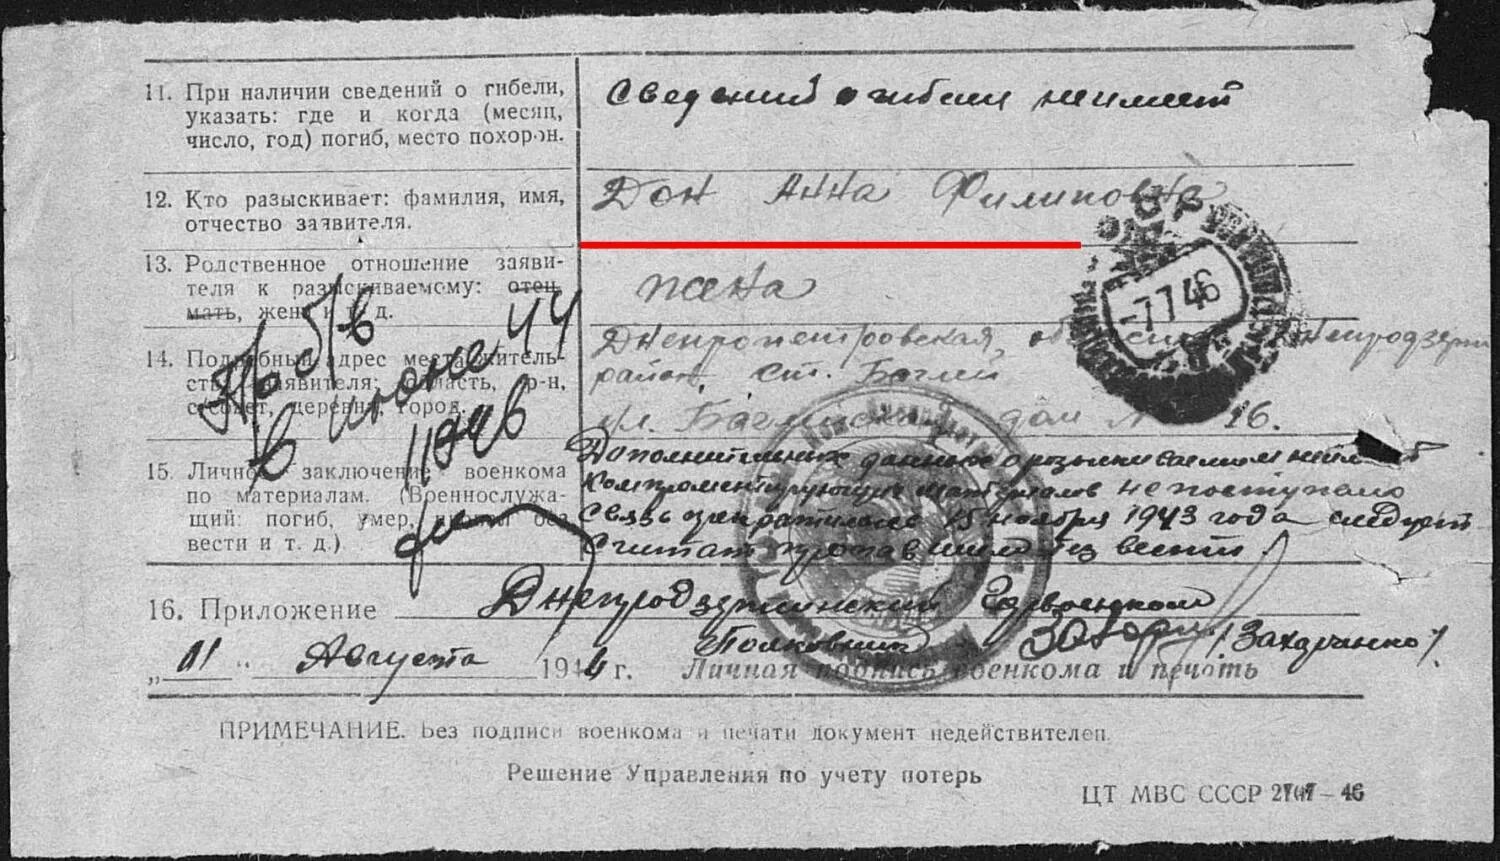 11. При наличии сведений о гибели,
указать: где и когда (месяц,
число, год) погиб, место похорон.
Сведений о гибели не имеет
12. Кто разыскивает: фамилия, имя,
отчество заявителя.
Дон Анна Филиповна
13. Родственное отношение заяви-
теля к разыскиваемому: отец,
мать, жена и т. д.
жена
14. Подробный адрес местожитель-
ства заявителя: область, р-н,
с/совет, деревня, город.
Днепропетровская, область Днепродзерж
район, ст. Баглий
ул. Баглийская дом № 16.
15. Личное заключение военкома
по материалам. (Военнослужа-
щий: погиб, умер, пропал без
вести и т. д.)
Дополнительных данных о разыскиваемом не имеет
Компроментирующих материалов не поступало
Связь прекратилась 15 ноября 1943 года следует
считат пропавшим без вести
Проп б/в
в июне 44
11946
16. Приложение Днепродзержинский Горвоенком
Полковник /Захарченко/
„11" Августа 1946 г. Личная подпись военкома и печать
-7 7 46
ПРИМЕЧАНИЕ. Без подписи военкома и печати документ недействителен.
Решение Управления по учету потерь
ЦТ МВС СССР 2707-46